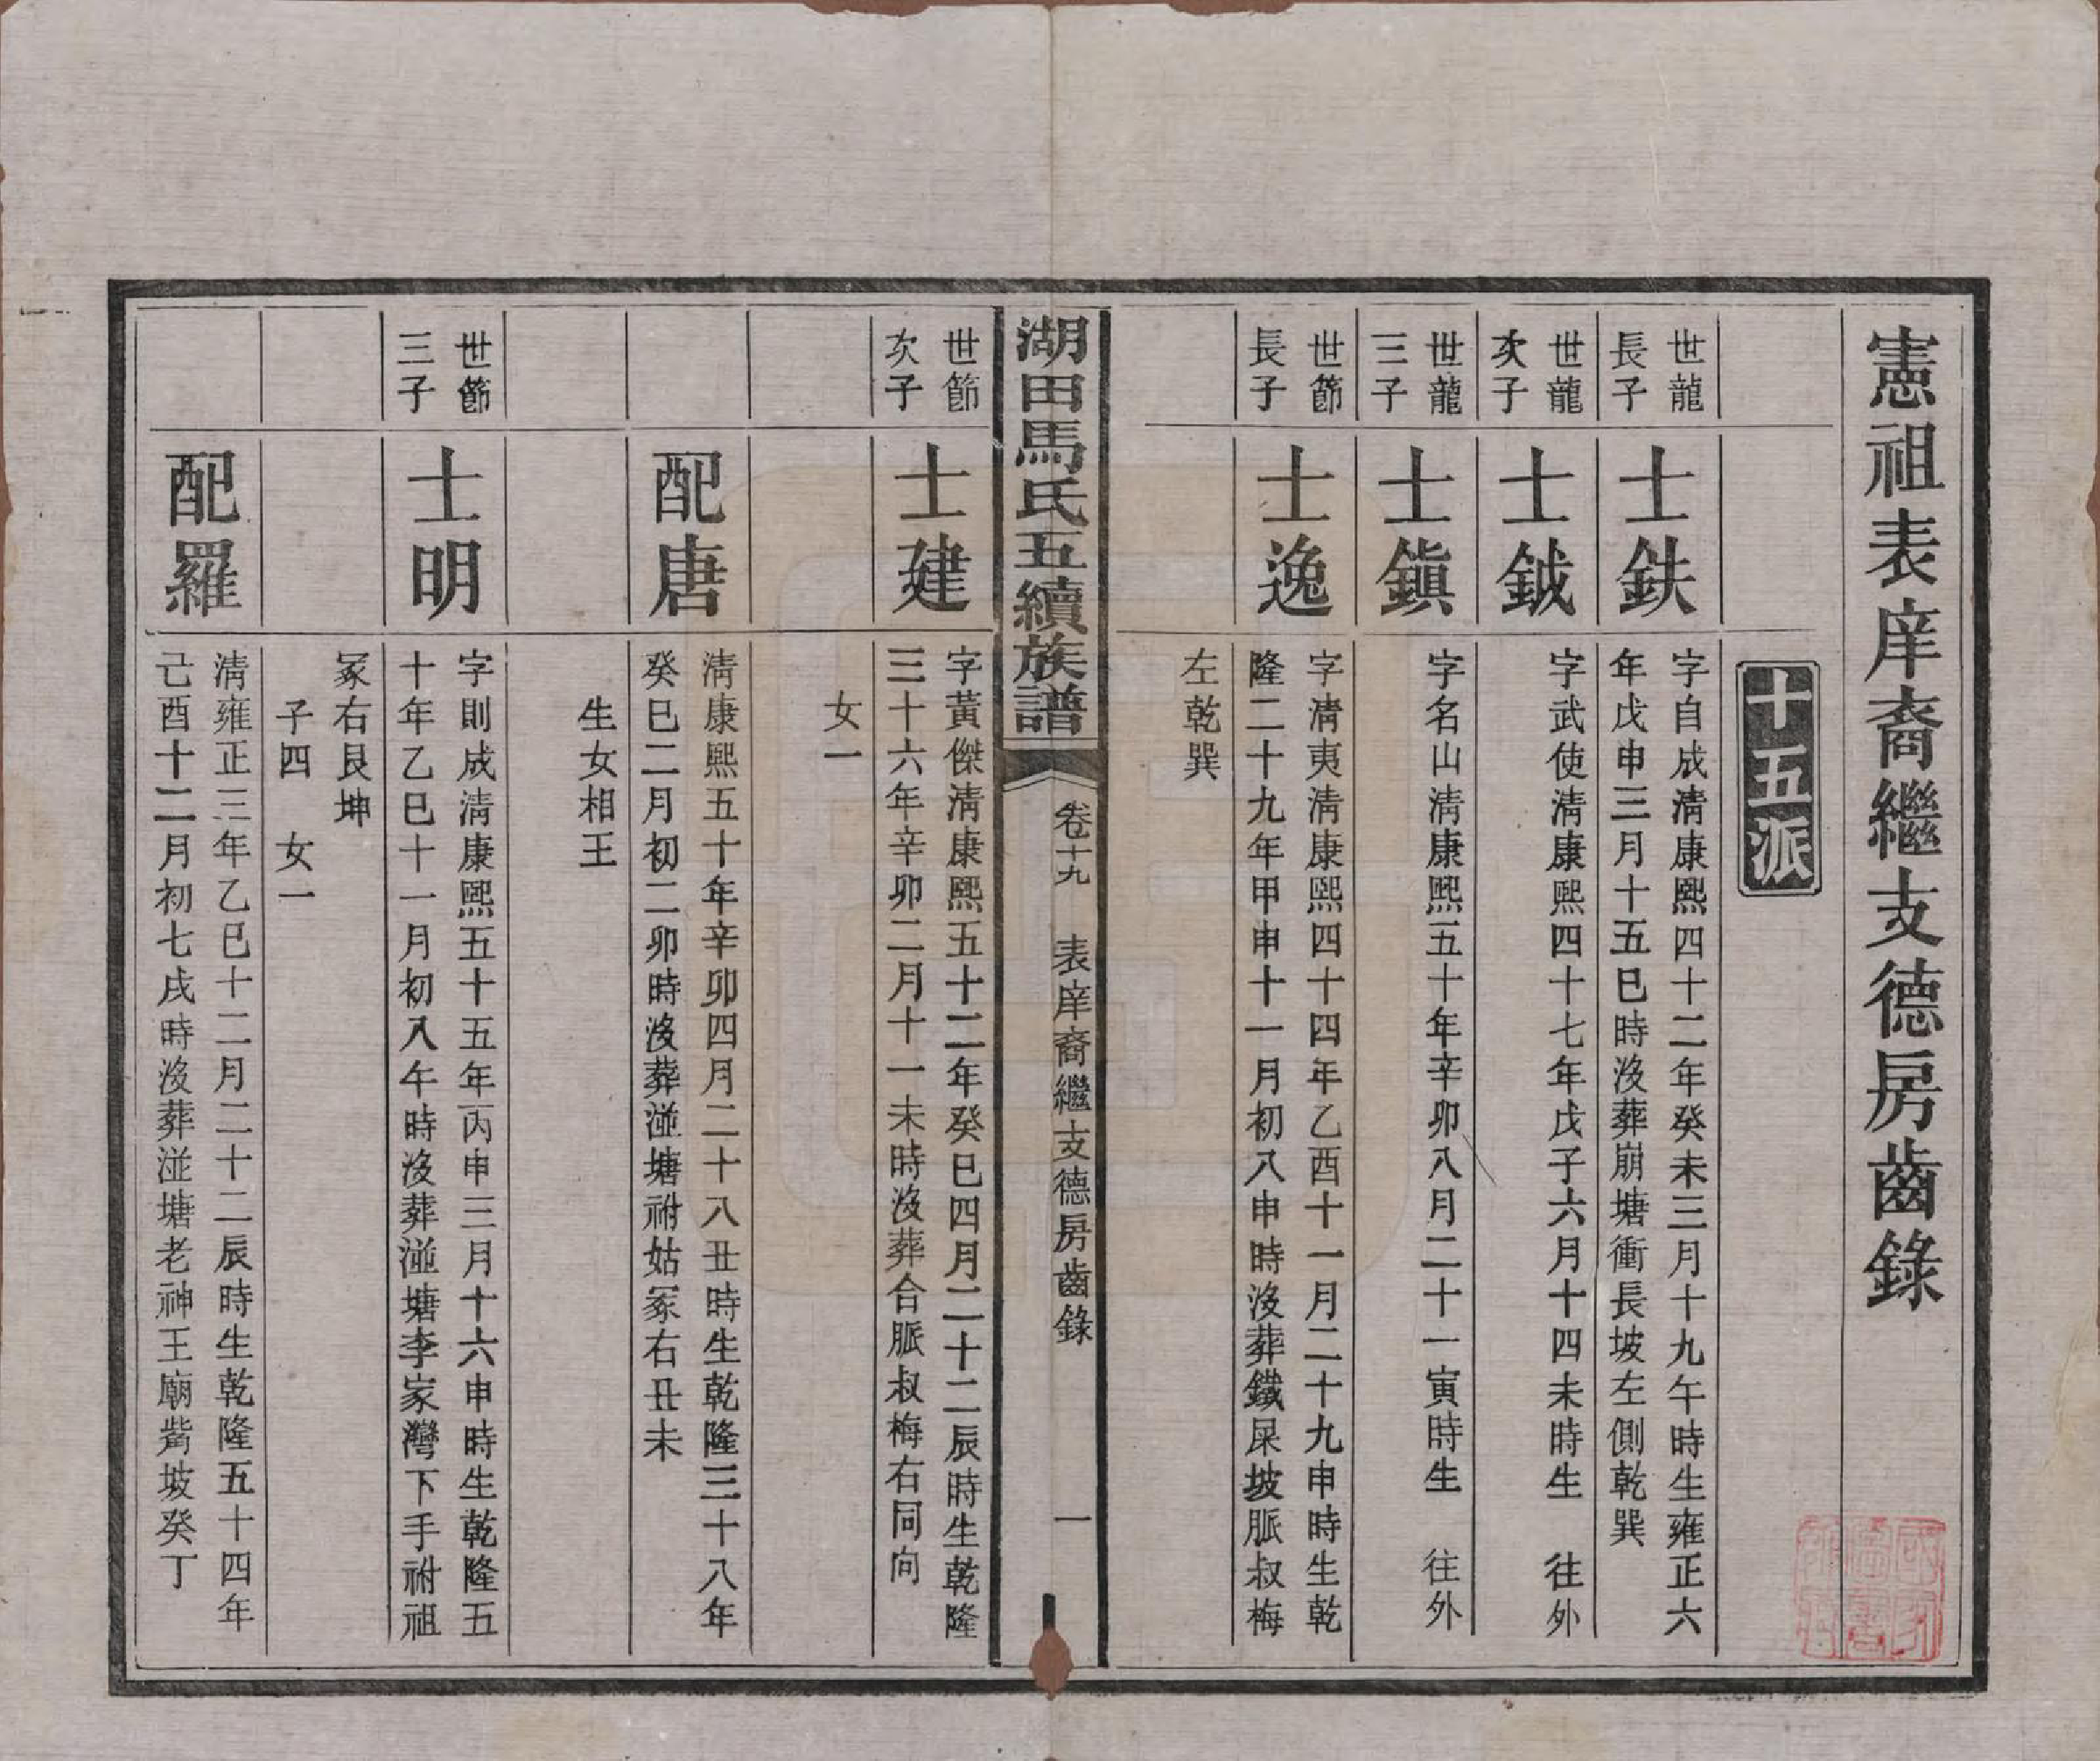 憲祖表庠裔繼支德房齒錄
十五派
世龍
長子
士鉄
字自成清康熙四十二年癸未三月十九午時生雍正六
年戊申三月十五巳時沒葬崩塘衝長坡左側乾巽
世龍
次子
士鉞
字武使清康熙四十七年戊子六月十四未時生　往外
世龍
三子
士鎭
字名山清康熙五十年辛卯八月二十一寅時生　往外
世節
長子
士逸
字清夷清康熙四十四年乙酉十一月二十九申時生乾
隆二十九年甲申十一月初八申時沒葬鐵屎坡脈叔梅
左乾巽
湖田馬氏五續族譜
卷十九　表庠裔繼支德房齒錄
一
世節
次子
士建
字黃傑清康熙五十二年癸巳四月二十二辰時生乾隆
三十六年辛卯二月十一未時沒葬合脈叔梅右同向
女一
配唐
清康熙五十年辛卯四月二十八丑時生乾隆三十八年
癸巳二月初二卯時沒葬湴塘祔姑冢右丑未
生女相王
世節
三子
士明
字則成清康熙五十五年丙申三月十六申時生乾隆五
十年乙巳十一月初八午時沒葬湴塘李家灣下手祔祖
冢右艮坤
子四　女一
配羅
清雍正三年乙巳十二月二十二辰時生乾隆五十四年
己酉十二月初七戌時沒葬湴塘老神王廟嘴坡癸丁